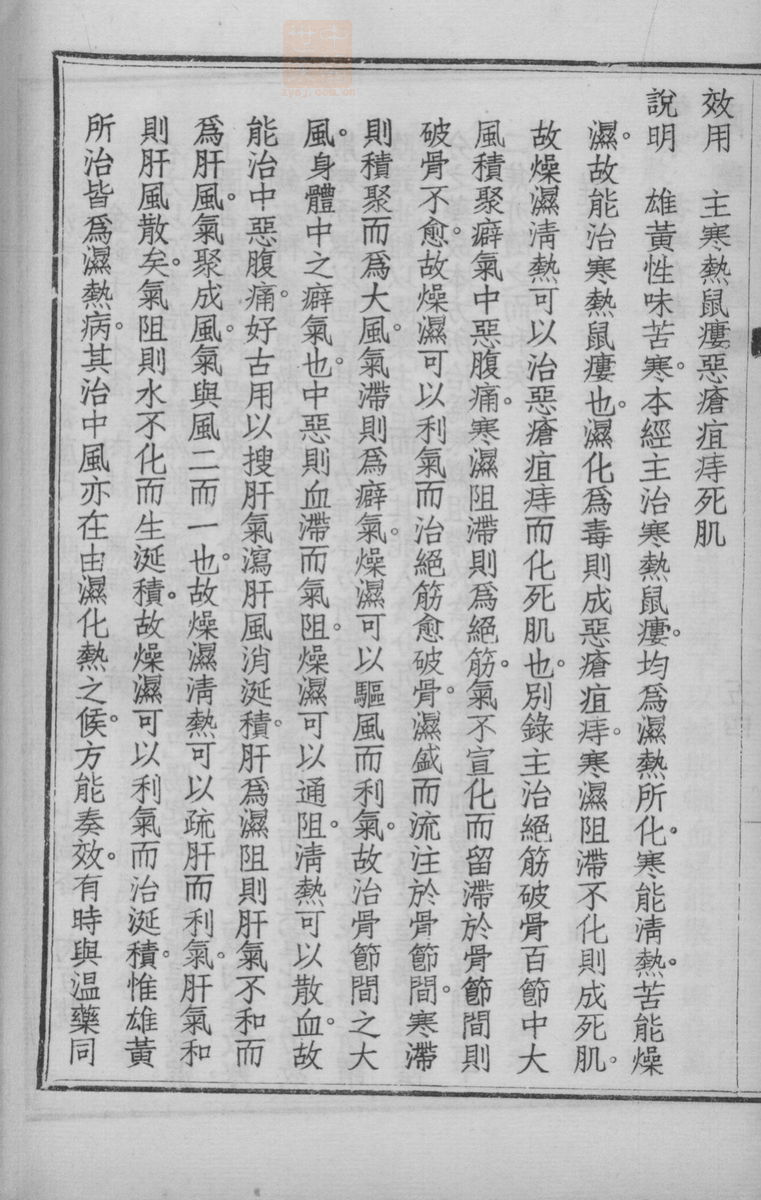 效用　主寒熱鼠瘻惡瘡疽痔死肌
說明　雄黃性味苦寒。本經主治寒熱鼠瘻。均爲濕熱所化。寒能淸熱。苦能燥
濕。故能治寒熱鼠瘻也。濕化爲毒則成惡瘡疽痔。寒濕阻滯不化則成死肌。
故燥濕淸熱可以治惡瘡疽痔而化死肌也。別錄主治絕筋破骨百節中大
風積聚癖氣中惡腹痛。寒濕阻滯則爲絕筋。氣不宣化而留滯於骨節間則
破骨不愈。故燥濕可以利氣而治絕筋愈破骨。濕盛而流注於骨節間。寒滯
則積聚而爲大風。氣滯則爲癖氣。燥濕可以驅風而利氣。故治骨節間之大
風。身體中之癖氣也。中惡則血滯而氣阻。燥濕可以通阻。淸熱可以散血。故
能治中惡腹痛。好古用以搜肝氣瀉肝風消涎積。肝爲濕阻則肝氣不和而
爲肝風。氣聚成風。氣與風二而一也。故燥濕淸熱可以疏肝而利氣。肝氣和
則肝風散矣。氣阻則水不化而生涎積。故燥濕可以利氣而治涎積。惟雄黃
所治皆爲濕熱病。其治中風亦在由濕化熱之候。方能奏效。有時與溫藥同
zysj.com.cn